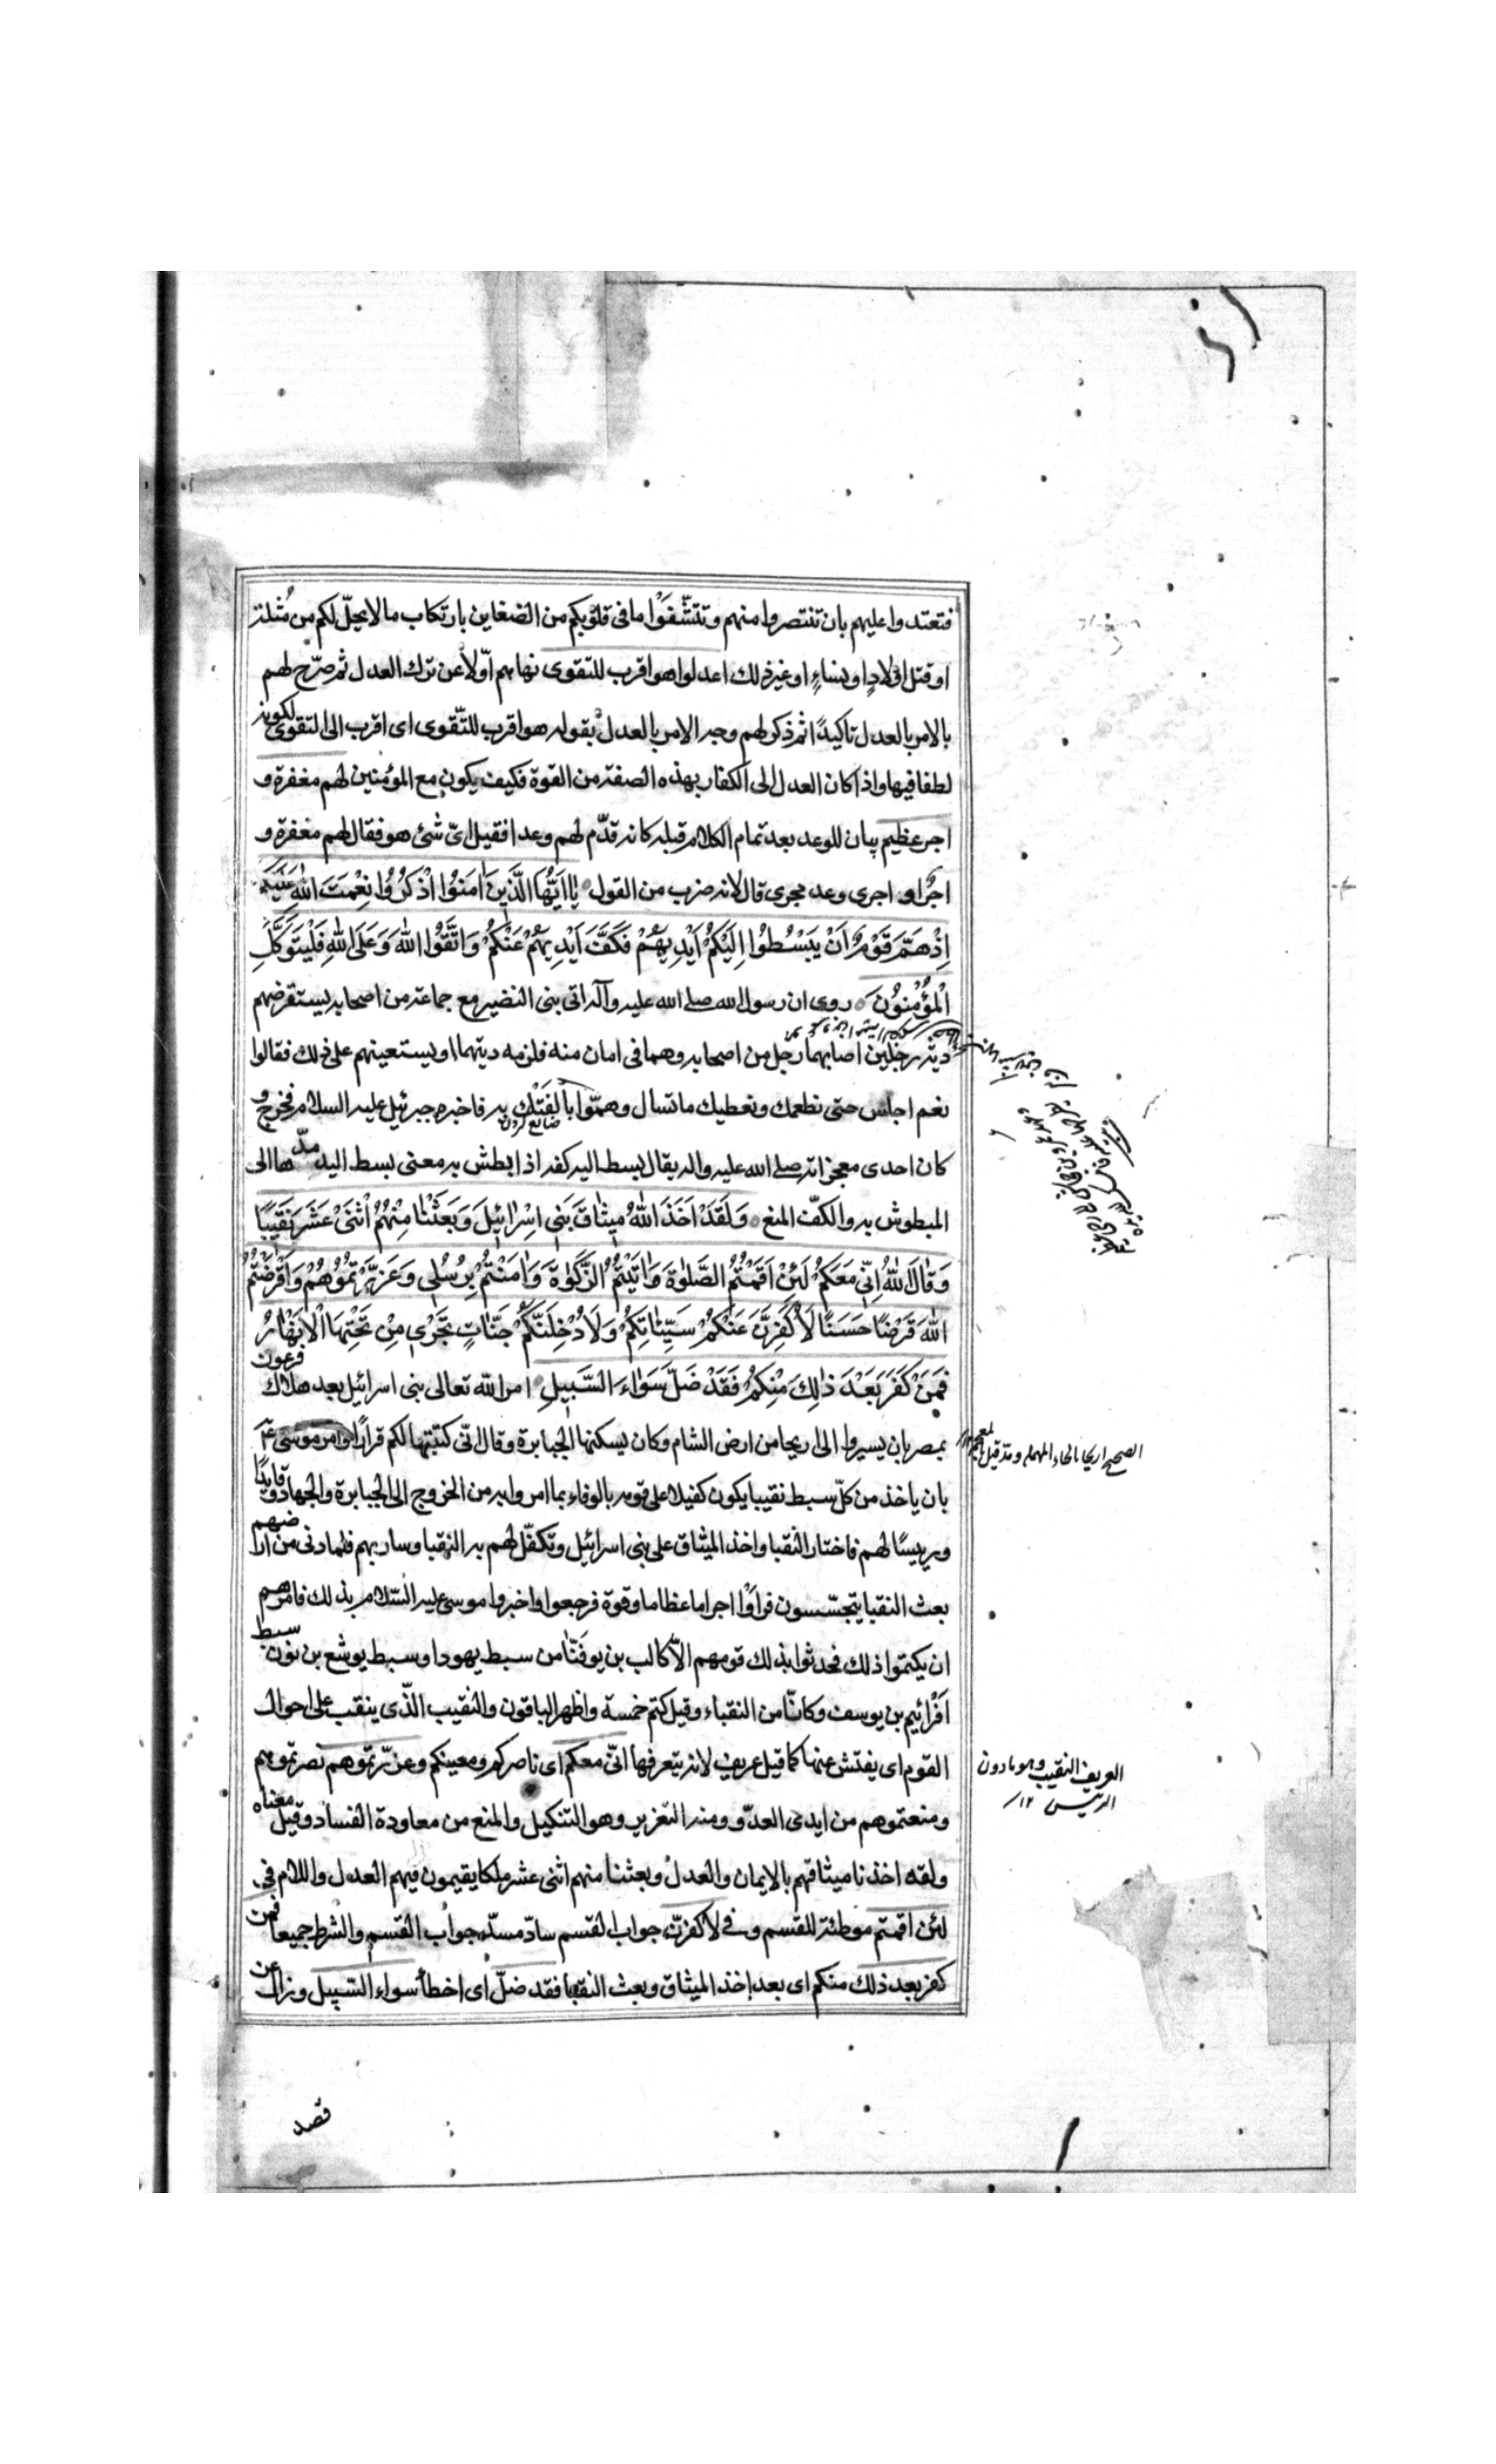 فتعتدوا عليهم بان تنتصروا منهم وتتشفّوا ما فى قلوبكم من الضغاين بارتكاب ما لا يحلّ لكم من مُثلة
او قتل اولادٍ او نساءٍ او غير ذلك اعدلوا هو اقرب للتقوى نهاهم اوّلاً عن ترك العدل ثم صرّح لهم
بالامر بالعدل تاكيدًا ثم ذكر لهم وجه الامر بالعدل بقوله هو اقرب للتّقوى اى اقرب الى التقوى لكونه
لطفا فيها واذا كان العدل الى الكفار بهذه الصفة من القوة فكيف يكون مع المؤمنين لهم مغفرة و
اجر عظيم بيان للوعد بعد تمام الكلام قبله كانه قدّم لهم وعدا فقيل اىّ شئ هو فقال لهم مغفرة و
اجرٌ او اجرى وعد مجرى قال لانه ضرب من القول يٰا اَيُّهَا الَّذِينَ اٰمَنُوا اذْكُرُوا نِعْمَتَ اللّٰهِ عَلَيْكُمْ
اِذْ هَمَّ قَوْمٌ اَنْ يَبْسُطُوا اِلَيْكُمْ اَيْدِيَهُمْ فَكَفَّ اَيْدِيَهُمْ عَنْكُمْ وَاتَّقُوا اللّٰهَ وَعَلَى اللّٰهِ فَلْيَتَوَكَّلِ
الْمُؤْمِنُونَ روى ان رسول الله صلى الله عليه وآله اتى بنى النضير مع جماعة من اصحابه يستقرضهم
دية رجلين اصابهما رجل من اصحابه وهما فى امان منه فلزمه ديتهما او يستعينهم على ذلك فقالوا
نعم اجلس حتى نطعمك ونعطيك ما تسال وهمّوا بالفَتْكِ به فاخبره جبرئيل عليه السلام فخرج و
كان احدى معجزاته صلى الله عليه واله يقال بسط اليه كفه اذا بطش به معنى بسط اليد مدّها الى
المبطوش به والكفّ المنع وَلَقَدْ اَخَذَ اللّٰهُ مِيثٰاقَ بَنِى اِسْرٰائِيلَ وَبَعَثْنٰا مِنْهُمُ اثْنَىْ عَشَرَ نَقِيبًا
وَقٰالَ اللّٰهُ اِنّى مَعَكُمْ لَئِنْ اَقَمْتُمُ الصَّلٰوةَ وَاٰتَيْتُمُ الزَّكٰوةَ وَاٰمَنْتُمْ بِرُسُلِى وَعَزَّرْتُمُوهُمْ وَاَقْرَضْتُمُ
اللّٰهَ قَرْضًا حَسَنًا لَاُكَفِّرَنَّ عَنْكُمْ سَيِّئٰاتِكُمْ وَلَاُدْخِلَنَّكُمْ جَنّٰاتٍ تَجْرِى مِنْ تَحْتِهَا الْاَنْهٰارُ
فَمَنْ كَفَرَ بَعْدَ ذٰلِكَ مِنْكُمْ فَقَدْ ضَلَّ سَوٰاءَ السَّبِيلِ امر الله تعالى بنى اسرائيل بعد هلاك فرعون
بمصر بان يسيروا الى اريحا من ارض الشام وكان يسكنها الجبابرة وقال انّى كتبتها لكم قرارًا وامر موسى ع
بان ياخذ من كلّ سبط نقيبا يكون كفيلا على قومه بالوفاء بما امروا به من الخروج الى الجبابرة والجهاد وقايدًا
ورييسًا لهم فاختار النقبا واخذ الميثاق على بنى اسرائيل وتكفّل لهم به النقبا وسار بهم فلما دنى من ارضهم
بعث النقبا يتجسّسون فراَوْا اجراما عظاما وقوة فرجعوا واخبروا موسى عليه السّلام بذلك فامرهم
ان يكتموا ذلك فحدثوا بذلك قومهم الّا كالب بن يوفَنّا من سبط يهودا وسبط يوشع بن نون سبط
اَفْرائيم بن يوسف وكانا من النقباء وقيل كتم خمسة واظهر الباقون والنقيب الّذى ينقب على احوال
القوم اى يفتش عنها كما قيل عريف لانه يتعرفها انّى معكم اى ناصركم ومعينكم وعزّرتموهم نصرتموهم
ومنعتموهم من ايدى العدّو ومنه التعزير وهو التنكيل والمنع من معاودة الفساد وقيل معناه
ولقد اخذنا ميثاقهم بالايمان والعدل وبعثنا منهم اثنى عشر ملكا يقيمون فيهم العدل واللام فى
لئن اقمتم موطئة للقسم وفى لاكفرنّ جواب القسم سادّ مسدّ جواب القسم والشرط جميعا فمن
كفر بعد ذلك منكم اى بعد اخذ الميثاق وبعث النقبا فقد ضلّ اى اخطأ سواء السّبيل وزال عن
قصد
ضايع كردن
الصحيح اريحا بالحاء المهملة وقد قيل بالمعجمة
العريف النقيب وهو ما دون
الرئيس ١٢